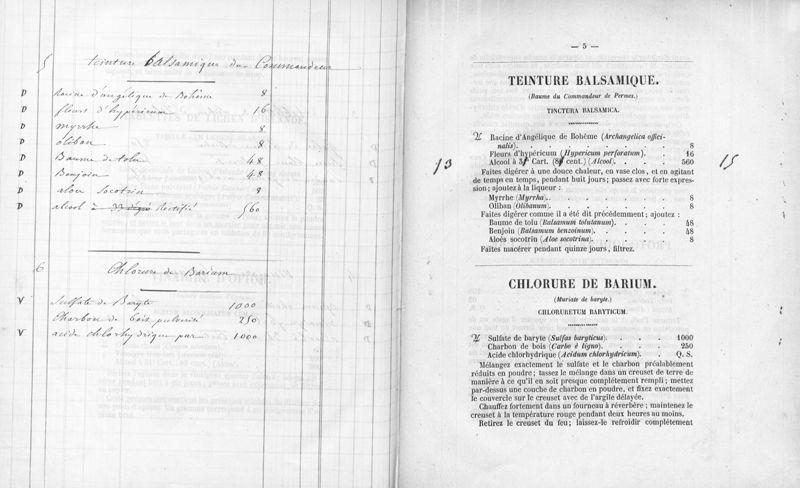 5 teinture balsamique du Commandeur
D Racine d'angélique de Bohème 8
D fleurs d'hypericum 16
D myrrhe 8
D oliban 8
D Baume de tolu 48
D Benjoin 48
D aloes Socotrin 8
D alcool à 33 degré Rectifié 560
6 Chlorure de Barium
V Sulfate de Baryte 1000
Charbon de bois pulvérisé 250
V acide chlorhydrique pur 1000
— 5 —
TEINTURE BALSAMIQUE.
(Baume du Commandeur de Permes.)
TINCTURA BALSAMICA.
♃ Racine d'Angélique de Bohême (Archangelica offici-
nalis). . . . . . . . 8
Fleurs d'hypéricum (Hypericum perforatum). . . 16
13 Alcool à 3 Cart. (8 cent.) (Alcool). . . . 560 15
Faites digérer à une douce chaleur, en vase clos, et en agitant
de temps en temps, pendant huit jours; passez avec forte expres-
sion; ajoutez à la liqueur :
Myrrhe (Myrrha). . . . . . . 8
Oliban (Olibanum). . . . . . . 8
Faites digérer comme il a été dit précédemment; ajoutez :
Baume de tolu (Balsamum tolutanum). . . . 48
Benjoin (Balsamum benzoinum). . . . . 48
Aloès socotrin (Aloe socotrina). . . . . 8
Faites macérer pendant quinze jours, filtrez.
CHLORURE DE BARIUM.
(Muriate de baryte.)
CHLORURETUM BARYTICUM.
♃ Sulfate de baryte (Sulfas baryticus). . . . 1000
Charbon de bois (Carbo è ligno). . . . . 250
Acide chlorhydrique (Acidum chlorhydricum). . . Q. S.
Mélangez exactement le sulfate et le charbon préalablement
réduits en poudre; tassez le mélange dans un creuset de terre de
manière à ce qu'il en soit presque complétement rempli; mettez
par-dessus une couche de charbon en poudre, et fixez exactement
le couvercle sur le creuset avec de l'argile délayée.
Chauffez fortement dans un fourneau à réverbère; maintenez le
creuset à la température rouge pendant deux heures au moins.
Retirez le creuset du feu; laissez-le refroidir complétement